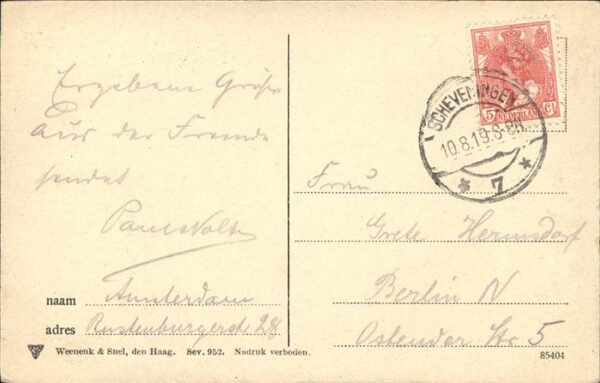 Ergebene Grüße
Aus der Fremde
sendet
Paul Nolte
naam Amsterdam
adres Rustenburgerstr 28
Weenenk & Snel, den Haag. Sev. 952. Nadruk verboden.
5 Ct
NEDERLAND
SCHEVENINGEN
10.8.19.8-9N
* 7 *
Frau
Grete Hermsdorf
Berlin N
Ostender Str 5
85404